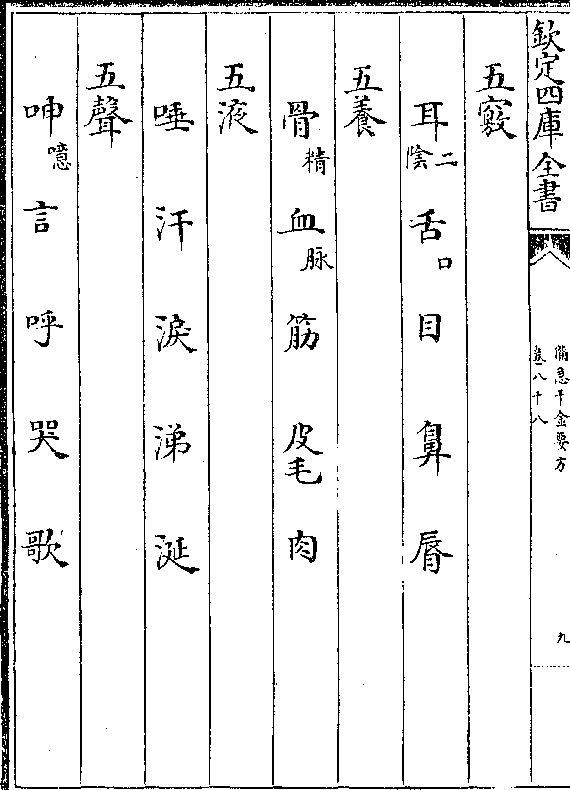 欽定四庫全書
備急千金要方
卷八十八
九
五竅
耳二陰 舌口 目 鼻 唇
五養
骨精 血脉 筋 皮毛 肉
五液
唾 汗 淚 涕 涎
五聲
呻噫 言 呼 哭 歌